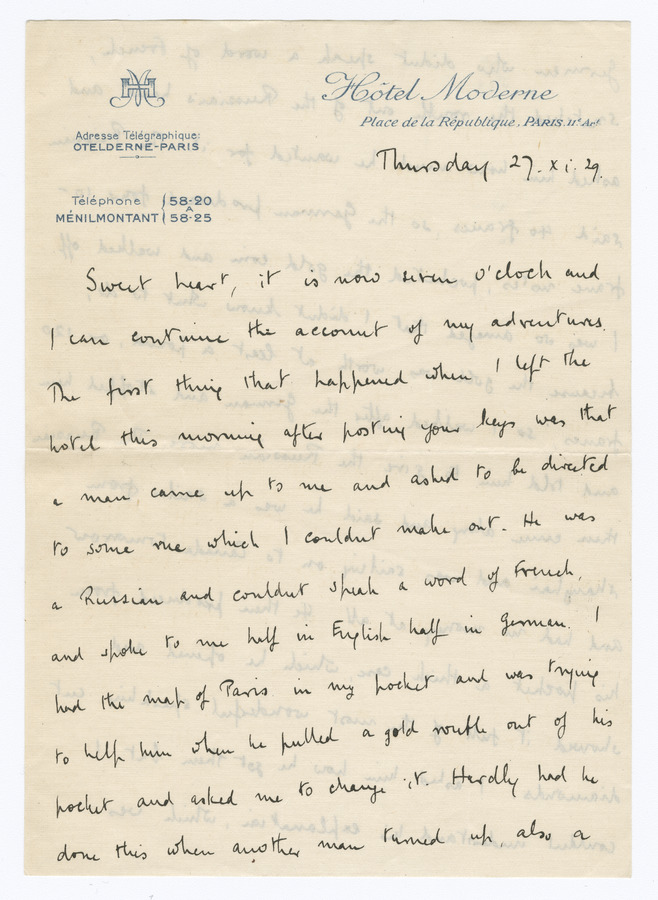 Hôtel Moderne
Place de la République, PARIS. 11e Art
Adresse Télégraphique:
OTELDERNE-PARIS
Téléphone 58-20
A
MÉNILMONTANT 58-25
Thursday 27. xi. 29.
Sweet heart, it is now seven o'clock and
I can continue the account of my adventures.
The first thing that happened when I left the
hotel this morning after posting your keys was that
a man came up to me and asked to be directed
to some rue which I couldnt make out. He was
a Russian and couldnt speak a word of French,
and spoke to me half in English half in German. I
had the map of Paris in my pocket and was trying
to help him when he pulled a gold rouble out of his
pocket and asked me to change it. Hardly had he
done this when another man turned up, also a